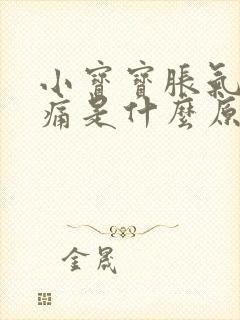 小寶寶脹氣
痛是什麼原
金晟